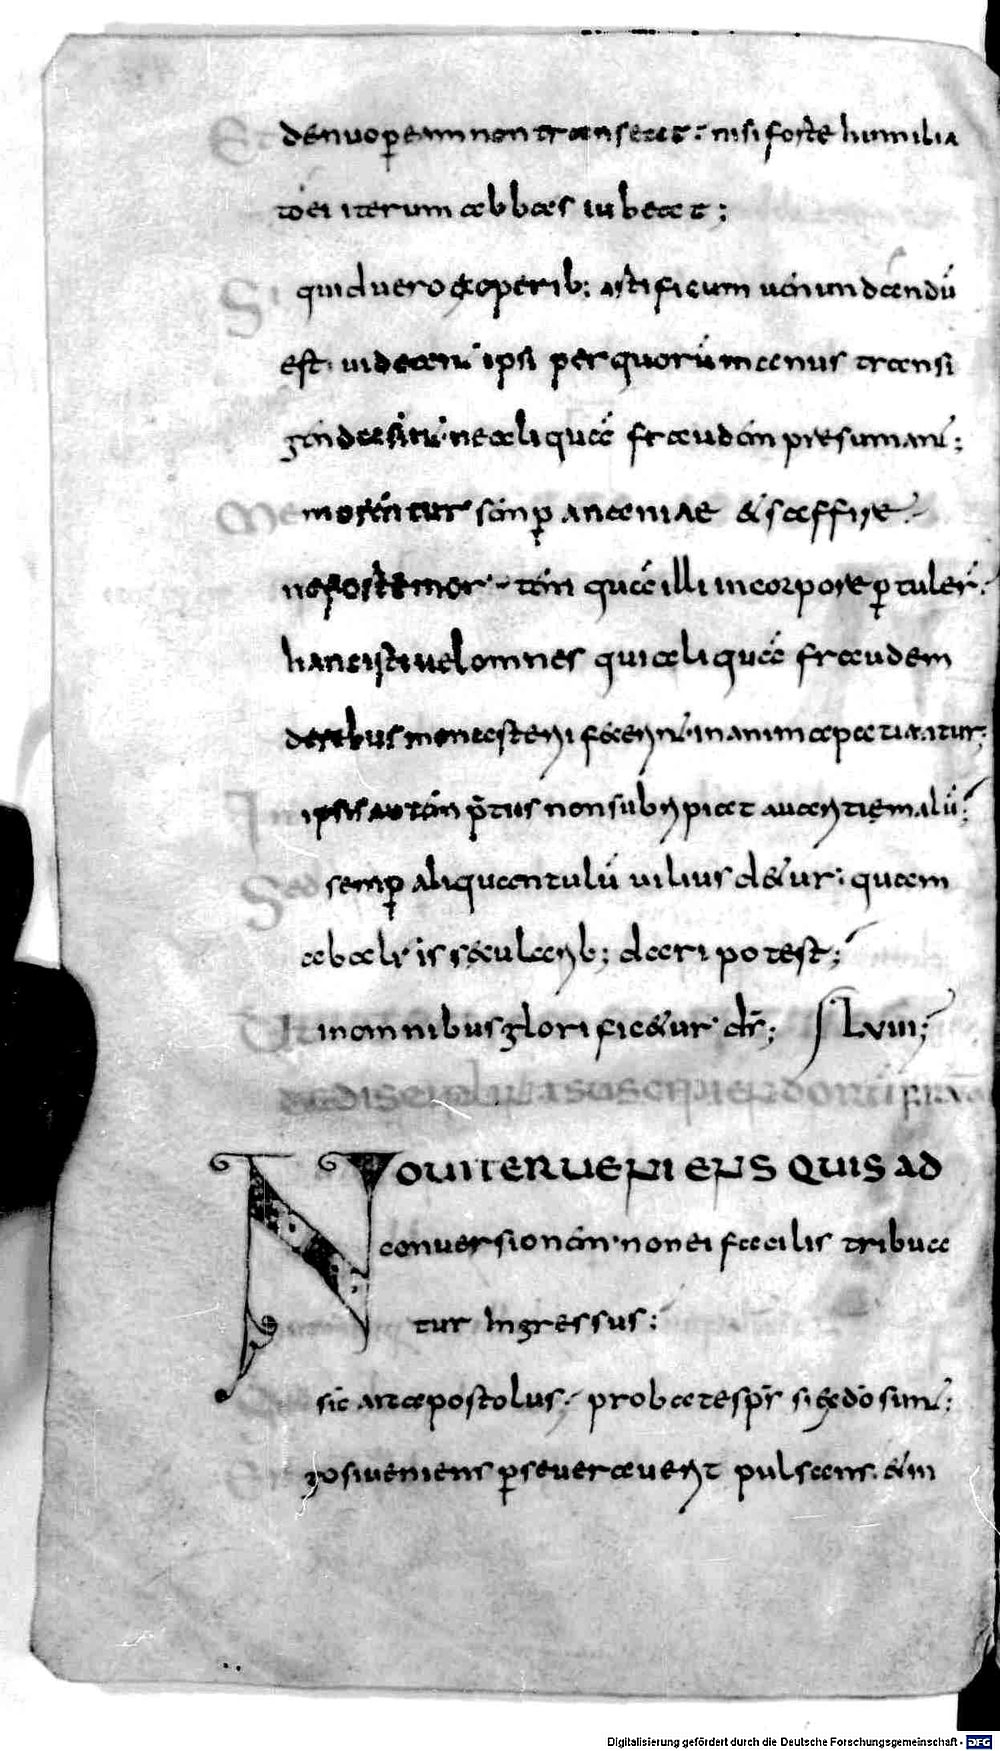 Et denuo p̱ eam non transeat; nisi forte humilia
to ei iterum abbas iubeat;
Si quid uero ex operib; artificum uenundandū
est. uideant ipsi per quorū manus transi
genda sint. ne aliquā fraudem presumant;
Memorentur semp̱ ananiae & saffire.
ne forte mor tem quā illi in corpore p̱tuler̄.
hanc isti uel omnes qui aliquā fraudem
de rebus monasterii fecerint. in anima patiantur;
In ipsis autem p̄tiis non subripiat auaritię malū;
Sed semp̱ aliquantulū uilius detur; quam
ab aliis secularib; dari potest;
Ut in omnibus glorificetur dr̄; LVIII;
de disciplina suscipiendorū fratrū
NOUITER UENIENS QUIS AD
conuersionem. non ei facilis tribua
tur ingressus;
sic ait apostolus. probate sps̄ si ex dō sunt;
Ergo si ueniens p̱seuerauerit pulsans. & in
Digitalisierung gefördert durch die Deutsche Forschungsgemeinschaft - DFG